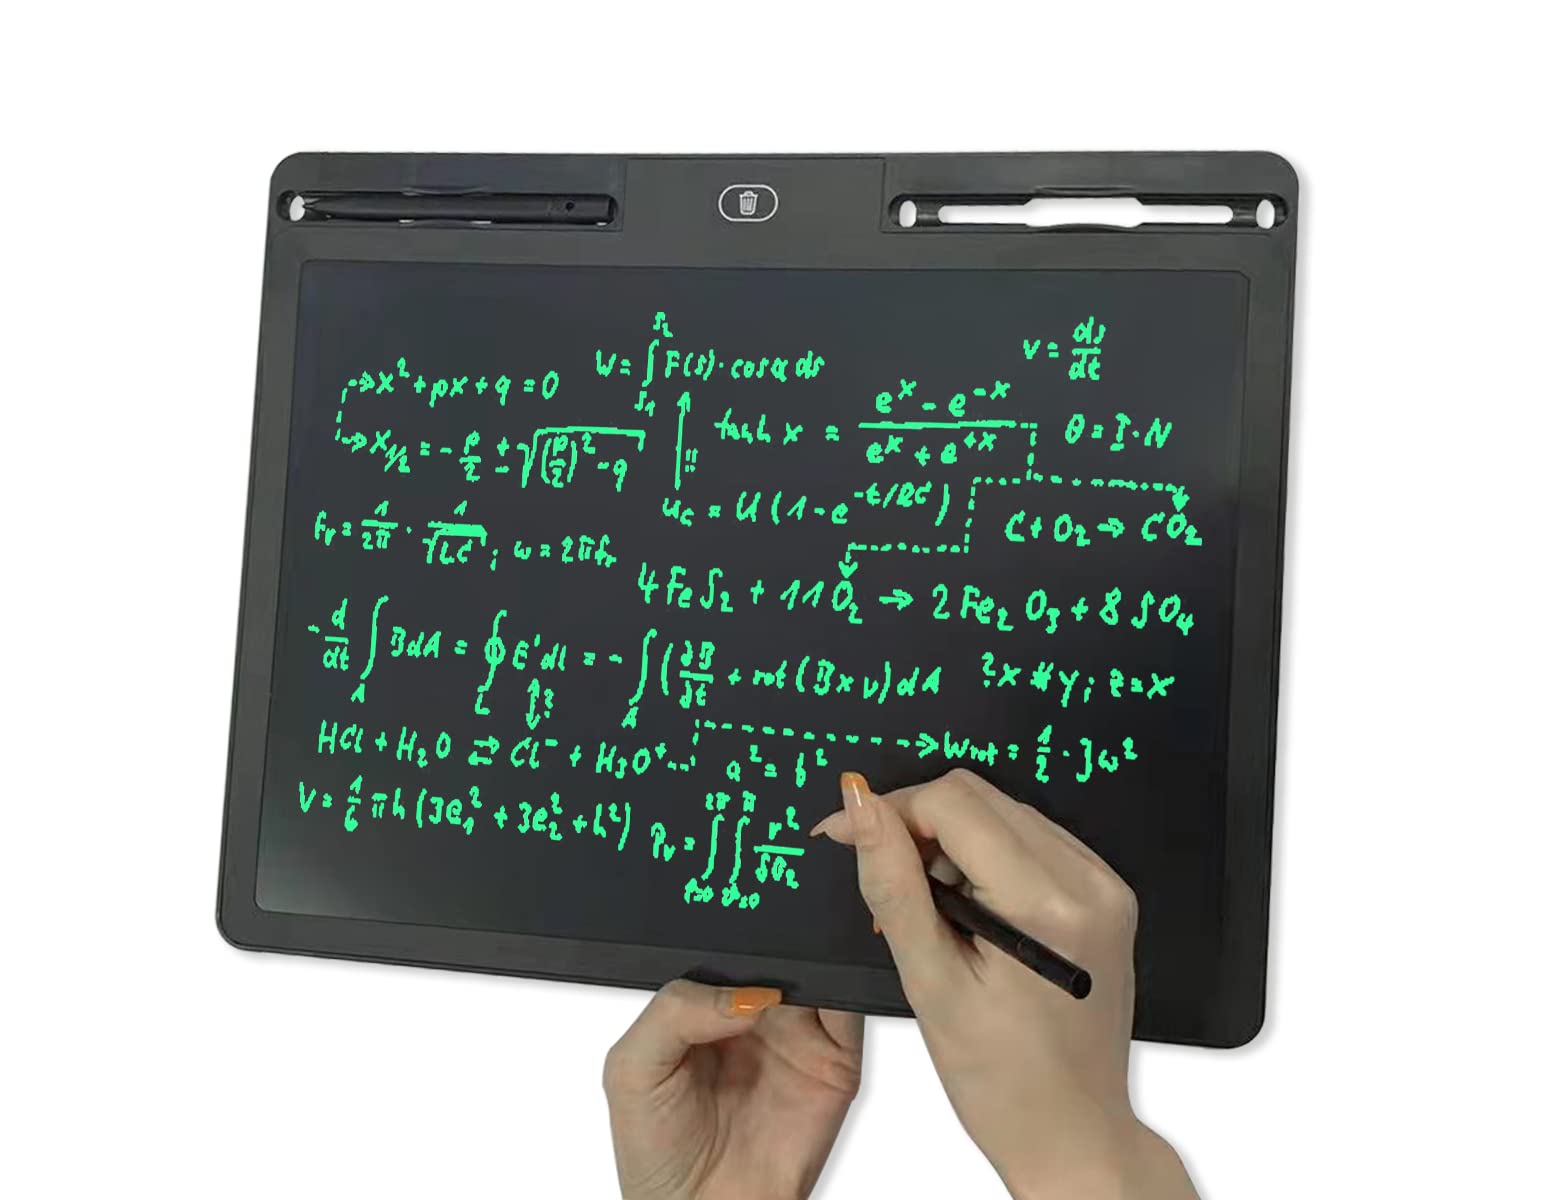 W = ∫_{s₁}^{s₂} F(s) · cos α ds
v = ds/dt
x² + px + q = 0
x₁/₂ = - p/2 ± √((p/2)² - q)
!!
tanh x = (e^x - e^-x)/(e^x + e^+x)
θ = I · N
u_c = U (1 - e^-t/RC)
C + O₂ → CO₂
f_r = 1/2π · 1/√LC ; ω = 2πf_r
4 FeS₂ + 11 O₂ → 2 Fe₂ O₃ + 8 SO₄
- d/dt ∫_A B dA = ∮_L E' dl = - ∫_A (∂B/∂t + rot (B x v) dA
?x # y ; z = x
↕?
HCl + H₂O ⇄ Cl⁻ + H₃O⁺
a² = b²
W_rot = 1/2 · J ω²
V = 1/6 πh (3e₁² + 3e₂² + h²)
P_v = ∫_{φ=0}^{2π} ∫_{ϑ=0}^{π} r²